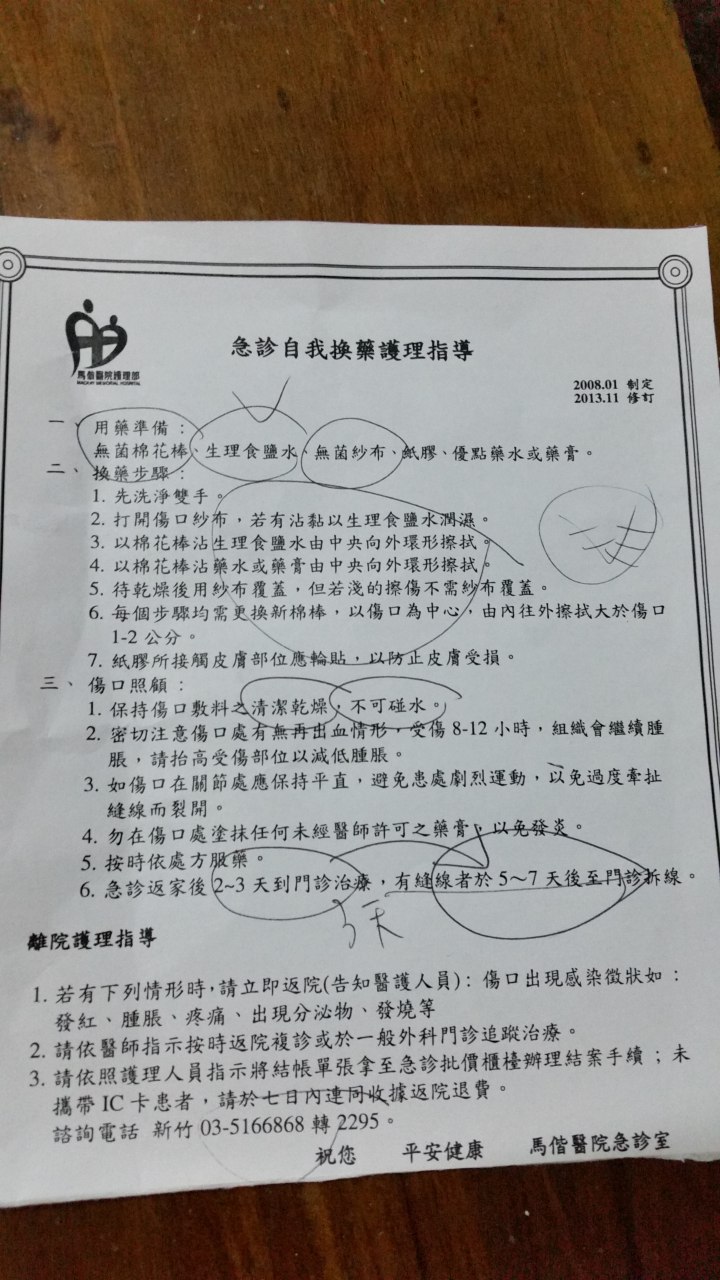 馬偕醫院護理部
MACKAY MEMORIAL HOSPITAL
急診自我換藥護理指導
2008.01 制定
2013.11 修訂
一、用藥準備：
無菌棉花棒、生理食鹽水、無菌紗布、紙膠、優點藥水或藥膏。
二、換藥步驟：
1. 先洗淨雙手。
2. 打開傷口紗布，若有沾黏以生理食鹽水潤濕。
3. 以棉花棒沾生理食鹽水由中央向外環形擦拭。
4. 以棉花棒沾藥水或藥膏由中央向外環形擦拭。
5. 待乾燥後用紗布覆蓋，但若淺的擦傷不需紗布覆蓋。
6. 每個步驟均需更換新棉棒，以傷口為中心，由內往外擦拭大於傷口
1-2 公分。
7. 紙膠所接觸皮膚部位應輪貼，以防止皮膚受損。
三、傷口照顧：
1. 保持傷口敷料之清潔乾燥，不可碰水。
2. 密切注意傷口處有無再出血情形，受傷 8-12 小時，組織會繼續腫
脹，請抬高受傷部位以減低腫脹。
3. 如傷口在關節處應保持平直，避免患處劇烈運動，以免過度牽扯
縫線而裂開。
4. 勿在傷口處塗抹任何未經醫師許可之藥膏，以免發炎。
5. 按時依處方服藥。
6. 急診返家後 2~3 天到門診治療，有縫線者於 5～7 天後至門診拆線。
3天
離院護理指導
1. 若有下列情形時，請立即返院(告知醫護人員)：傷口出現感染徵狀如：
發紅、腫脹、疼痛、出現分泌物、發燒等
2. 請依醫師指示按時返院複診或於一般外科門診追蹤治療。
3. 請依照護理人員指示將結帳單張拿至急診批價櫃檯辦理結案手續；未
攜帶 IC 卡患者，請於七日內連同收據返院退費。
諮詢電話 新竹 03-5166868 轉 2295。
祝您 平安健康 馬偕醫院急診室